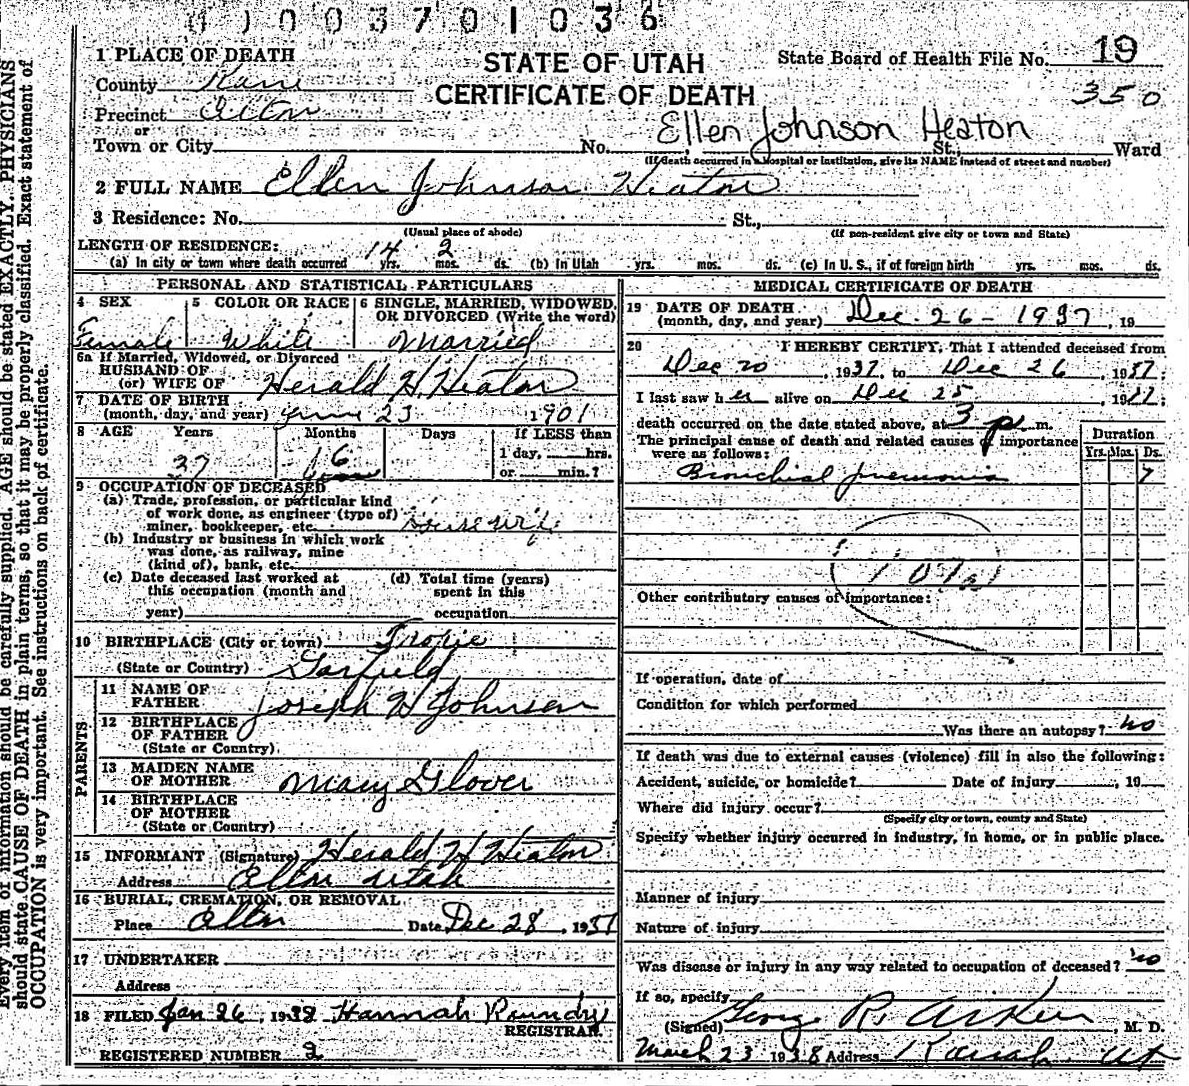 1003701036
1 PLACE OF DEATH
STATE OF UTAH
State Board of Health File No. 19
County Kane
CERTIFICATE OF DEATH
350
Precinct Alton
or
Ellen Johnson Heaton
Town or City No. St., Ward
(If death occurred in a hospital or institution, give its NAME instead of street and number)
2 FULL NAME Ellen Johnson Heaton
3 Residence: No. St.,
(Usual place of abode) (If non-resident give city or town and State)
LENGTH OF RESIDENCE:
(a) In city or town where death occurred 14 yrs. 2 mos. ds. (b) In Utah yrs. mos. ds. (c) In U. S., if of foreign birth yrs. mos. ds.
PERSONAL AND STATISTICAL PARTICULARS
4 SEX 5 COLOR OR RACE 6 SINGLE, MARRIED, WIDOWED, OR DIVORCED (Write the word)
Female White Married
6a If Married, Widowed, or Divorced
HUSBAND OF
(or) WIFE OF Herald H Heaton
7 DATE OF BIRTH
(month, day, and year) June 23 1901
8 AGE Years Months Days If LESS than
1 day, hrs.
37 6
or min.?
9 OCCUPATION OF DECEASED
(a) Trade, profession, or particular kind
of work done, as engineer (type of)
miner, bookkeeper, etc. Housewife
(b) Industry or business in which work
was done, as railway, mine
(kind of), bank, etc.
(c) Date deceased last worked at (d) Total time (years)
this occupation (month and spent in this
year) occupation
10 BIRTHPLACE (City or town) Tropic
(State or Country) Garfield
PARENTS
11 NAME OF
FATHER Joseph H Johnson
12 BIRTHPLACE
OF FATHER
(State or Country)
13 MAIDEN NAME
OF MOTHER Mary Glover
14 BIRTHPLACE
OF MOTHER
(State or Country)
15 INFORMANT (Signature) Herald H Heaton
Address Alton Utah
16 BURIAL, CREMATION, OR REMOVAL
Place Alton Date Dec 28, 1937
17 UNDERTAKER
Address
18 FILED Jan 26, 1938 Hannah Roundy
REGISTRAR.
REGISTERED NUMBER 2
MEDICAL CERTIFICATE OF DEATH
19 DATE OF DEATH
(month, day, and year) Dec. 26 - 1937, 19
20 I HEREBY CERTIFY, That I attended deceased from
Dec 20, 1937, to Dec 26, 1937;
I last saw her alive on Dec 25, 19
death occurred on the date stated above, at 3 p. m.
The principal cause of death and related causes of importance
were as follows:
Duration
Yrs. Mos. Ds.
Bronchial pneumonia 7
Other contributory causes of importance:
If operation, date of
Condition for which performed
Was there an autopsy? no
If death was due to external causes (violence) fill in also the following:
Accident, suicide, or homicide? Date of injury, 19
Where did injury occur?
(Specify city or town, county and State)
Specify whether injury occurred in industry, in home, or in public place.
Manner of injury
Nature of injury
Was disease or injury in any way related to occupation of deceased? no
If so, specify
(Signed) George R. Aiken, M. D.
March 23 1938 Address Kanab Ut
Every item of information should be carefully supplied. AGE should be stated EXACTLY. PHYSICIANS
should state CAUSE OF DEATH in plain terms, so that it may be properly classified. Exact statement of
OCCUPATION is very important. See instructions on back of certificate.